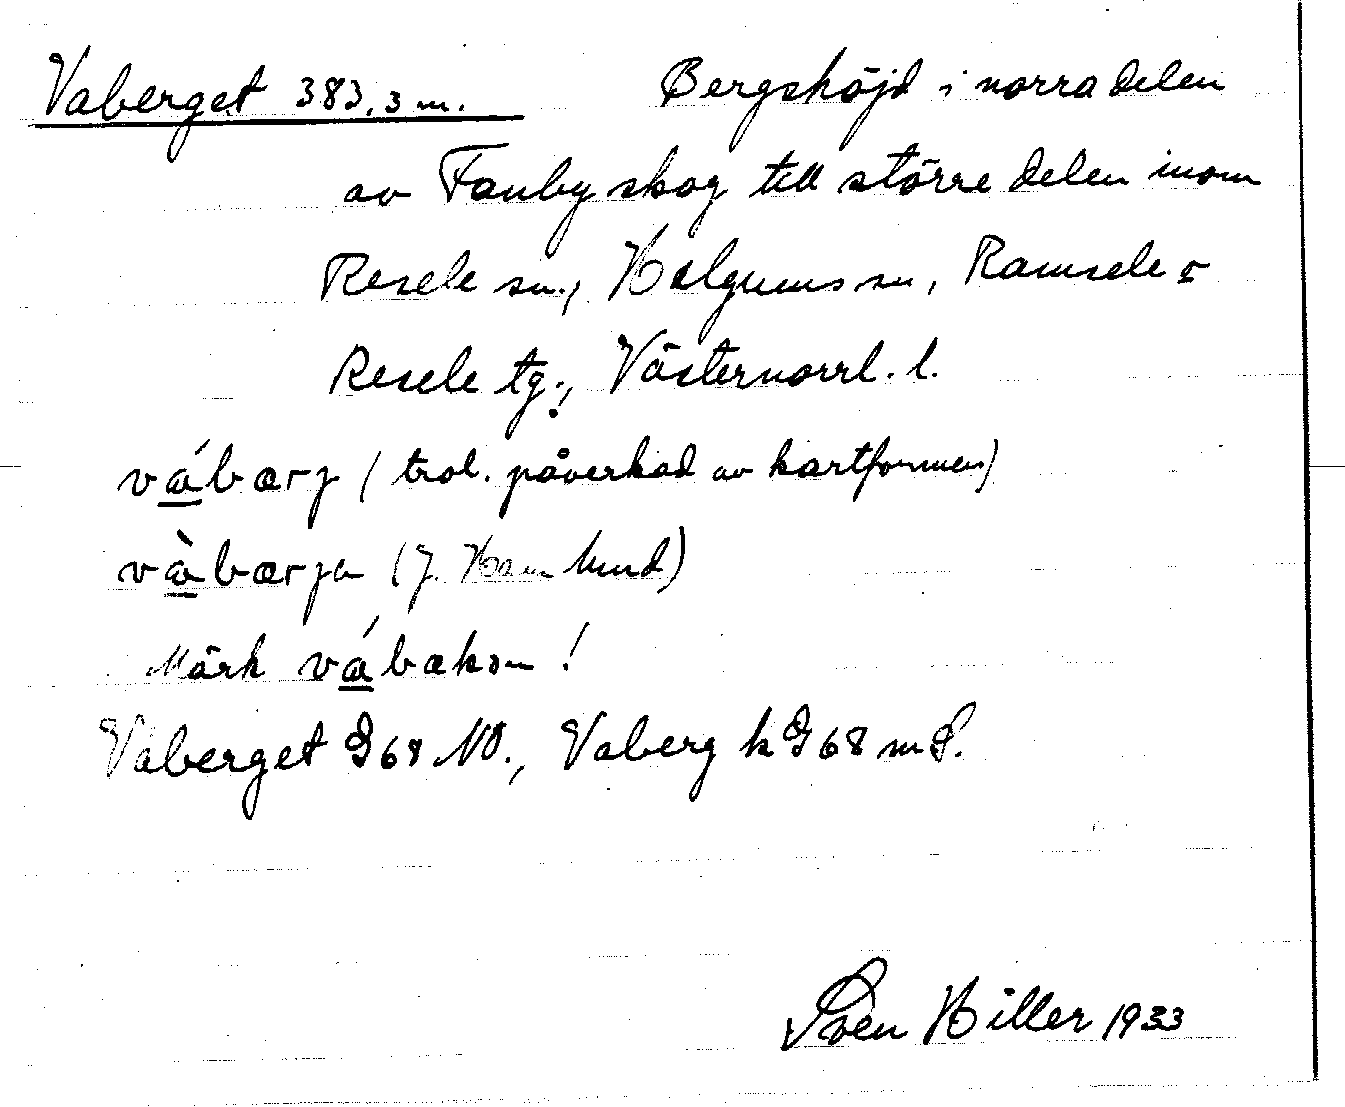 Vaberget 383,3 m. Bergshöjd i norra delen
av Tanby skog till större delen inom
Resele sn., Helgums sn, Ramsele o
Resele tg., Västernorrl. l.
vá̱bærj (trol. påverkad av kartformen)
và̱bærja (J. Hamlund)
Märk vá̱bækən !
Vaberget G 68 NO., Vaberg k G 68 m S.
Sven Hiller 1933